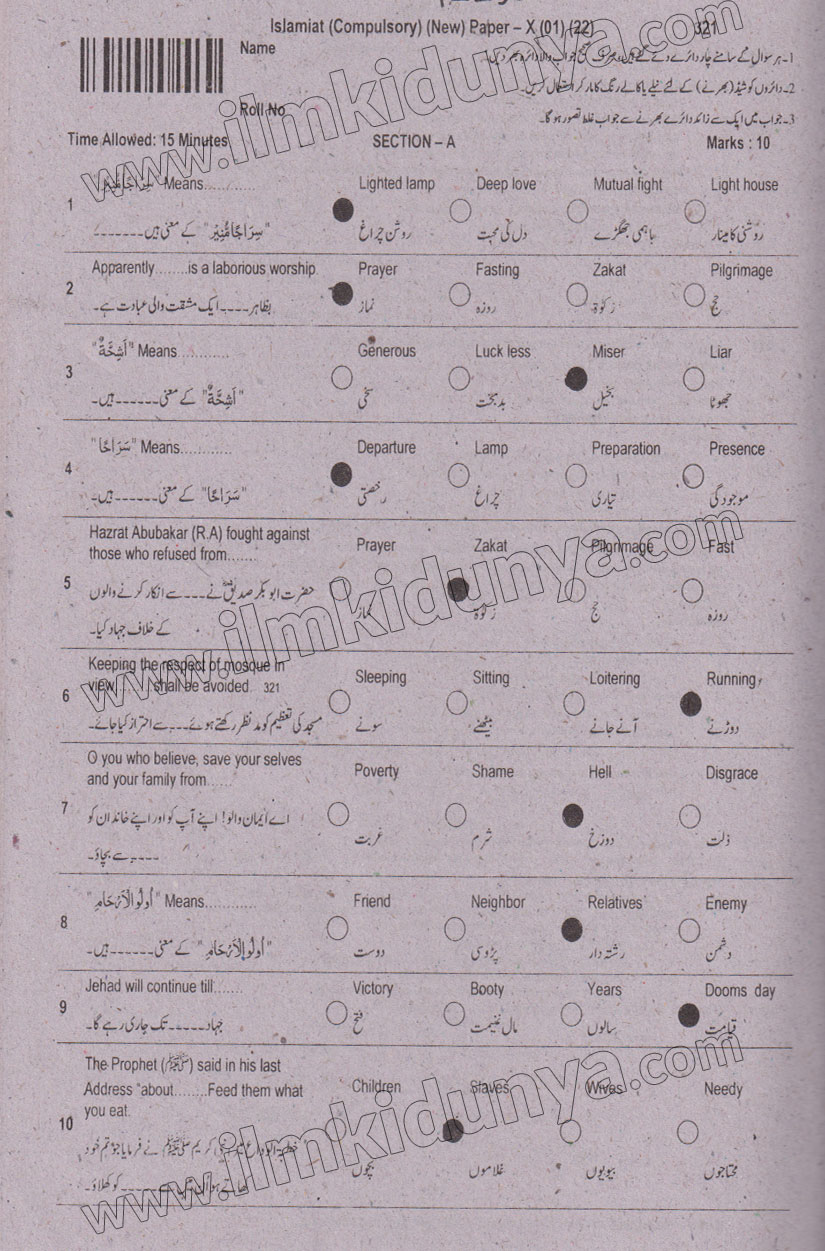 Islamiat (Compulsory) (New) Paper – X (01) (22) 321
Name
1۔ ہر سوال کے سامنے چار دائرے دئے گئے ہیں، صرف صحیح جواب والا دائرہ بھر دیں۔
2۔ دائروں کو شیڈ (بھرنے) کے لئے نیلے یا کالے رنگ کا مارکر استعمال کریں۔
Roll No
3۔ جواب میں ایک سے زائد دائرے بھرنے سے جواب غلط تصور ہوگا۔
Time Allowed: 15 Minutes SECTION – A Marks : 10
1
"سِرَاجًا مُّنِيْر" Means............ Lighted lamp Deep love Mutual fight Light house
"سِرَاجًا مُّنِيْر" کے معنی ہیں------؟ روشن چراغ دل کی محبت باہمی جھگڑے روشنی کا مینار
2
Apparently........is a laborious worship. Prayer Fasting Zakat Pilgrimage
بظاہر----ایک مشقت والی عبادت ہے۔ نماز روزہ زکوٰۃ حج
3
"اَشِحَّةً" Means............ Generous Luck less Miser Liar
"اَشِحَّةً" کے معنی------ہیں۔ سخی بدبخت بخیل جھوٹا
4
"سَرَاحًا" Means............ Departure Lamp Preparation Presence
"سَرَاحًا" کے معنی------ہیں۔ رخصتی چراغ تیاری موجودگی
5
Hazrat Abubakar (R.A) fought against
those who refused from....... Prayer Zakat Pilgrimage Fast
حضرت ابوبکر صدیقؓ نے---سے انکار کرنے والوں
کے خلاف جہاد کیا۔ نماز زکوٰۃ حج روزہ
6
Keeping the respect of mosque in
view........shall be avoided. 321 Sleeping Sitting Loitering Running
مسجد کی تعظیم کو مدنظر رکھتے ہوئے---سے احتراز کیا جائے۔ سونے بیٹھنے آنے جانے دوڑنے
7
O you who believe, save your selves
and your family from...... Poverty Shame Hell Disgrace
اے ایمان والو! اپنے آپ کو اور اپنے خاندان کو
----سے بچاؤ۔ غربت شرم دوزخ ذلت
8
"اُولُوا الْاَرْحَامِ" Means............ Friend Neighbor Relatives Enemy
"اُولُوا الْاَرْحَامِ" کے معنی------ہیں۔ دوست پڑوسی رشتہ دار دشمن
9
Jehad will continue till....... Victory Booty Years Dooms day
جہاد-----تک جاری رہے گا۔ فتح مال غنیمت سالوں قیامت
10
The Prophet (ﷺ) said in his last
Address "about........Feed them what
you eat. Children Slaves Wives Needy
خطبہ الوداع میں نبی کریم ﷺ نے فرمایا جو تم خود
کھاتے ہو -----کو کھلاؤ۔ بچوں غلاموں بیویوں محتاجوں
www.ilmkidunya.com
www.ilmkidunya.com
www.ilmkidunya.com